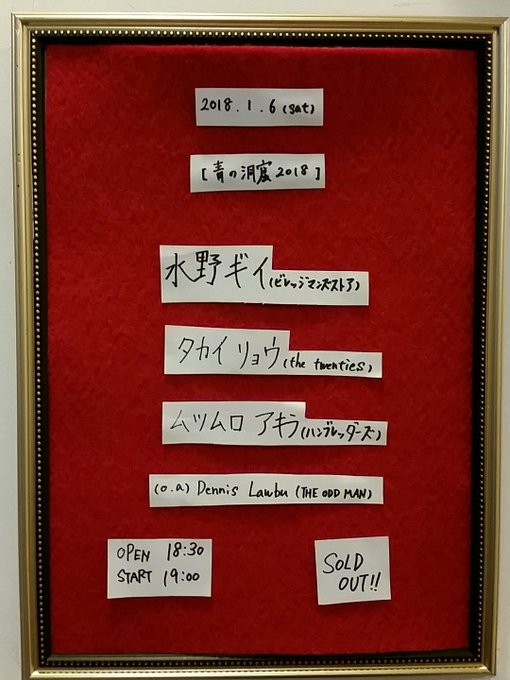 2018.1.6(sat)
[青の洞窟2018]
水野ギイ(ビレッジマンズストア)
タカイリョウ(the twenties)
ムツムロ アキラ(ハンブレッダーズ)
(o.a) Dennis Lawbu (THE ODD MAN)
OPEN 18:30
START 19:00
SOLD
OUT!!